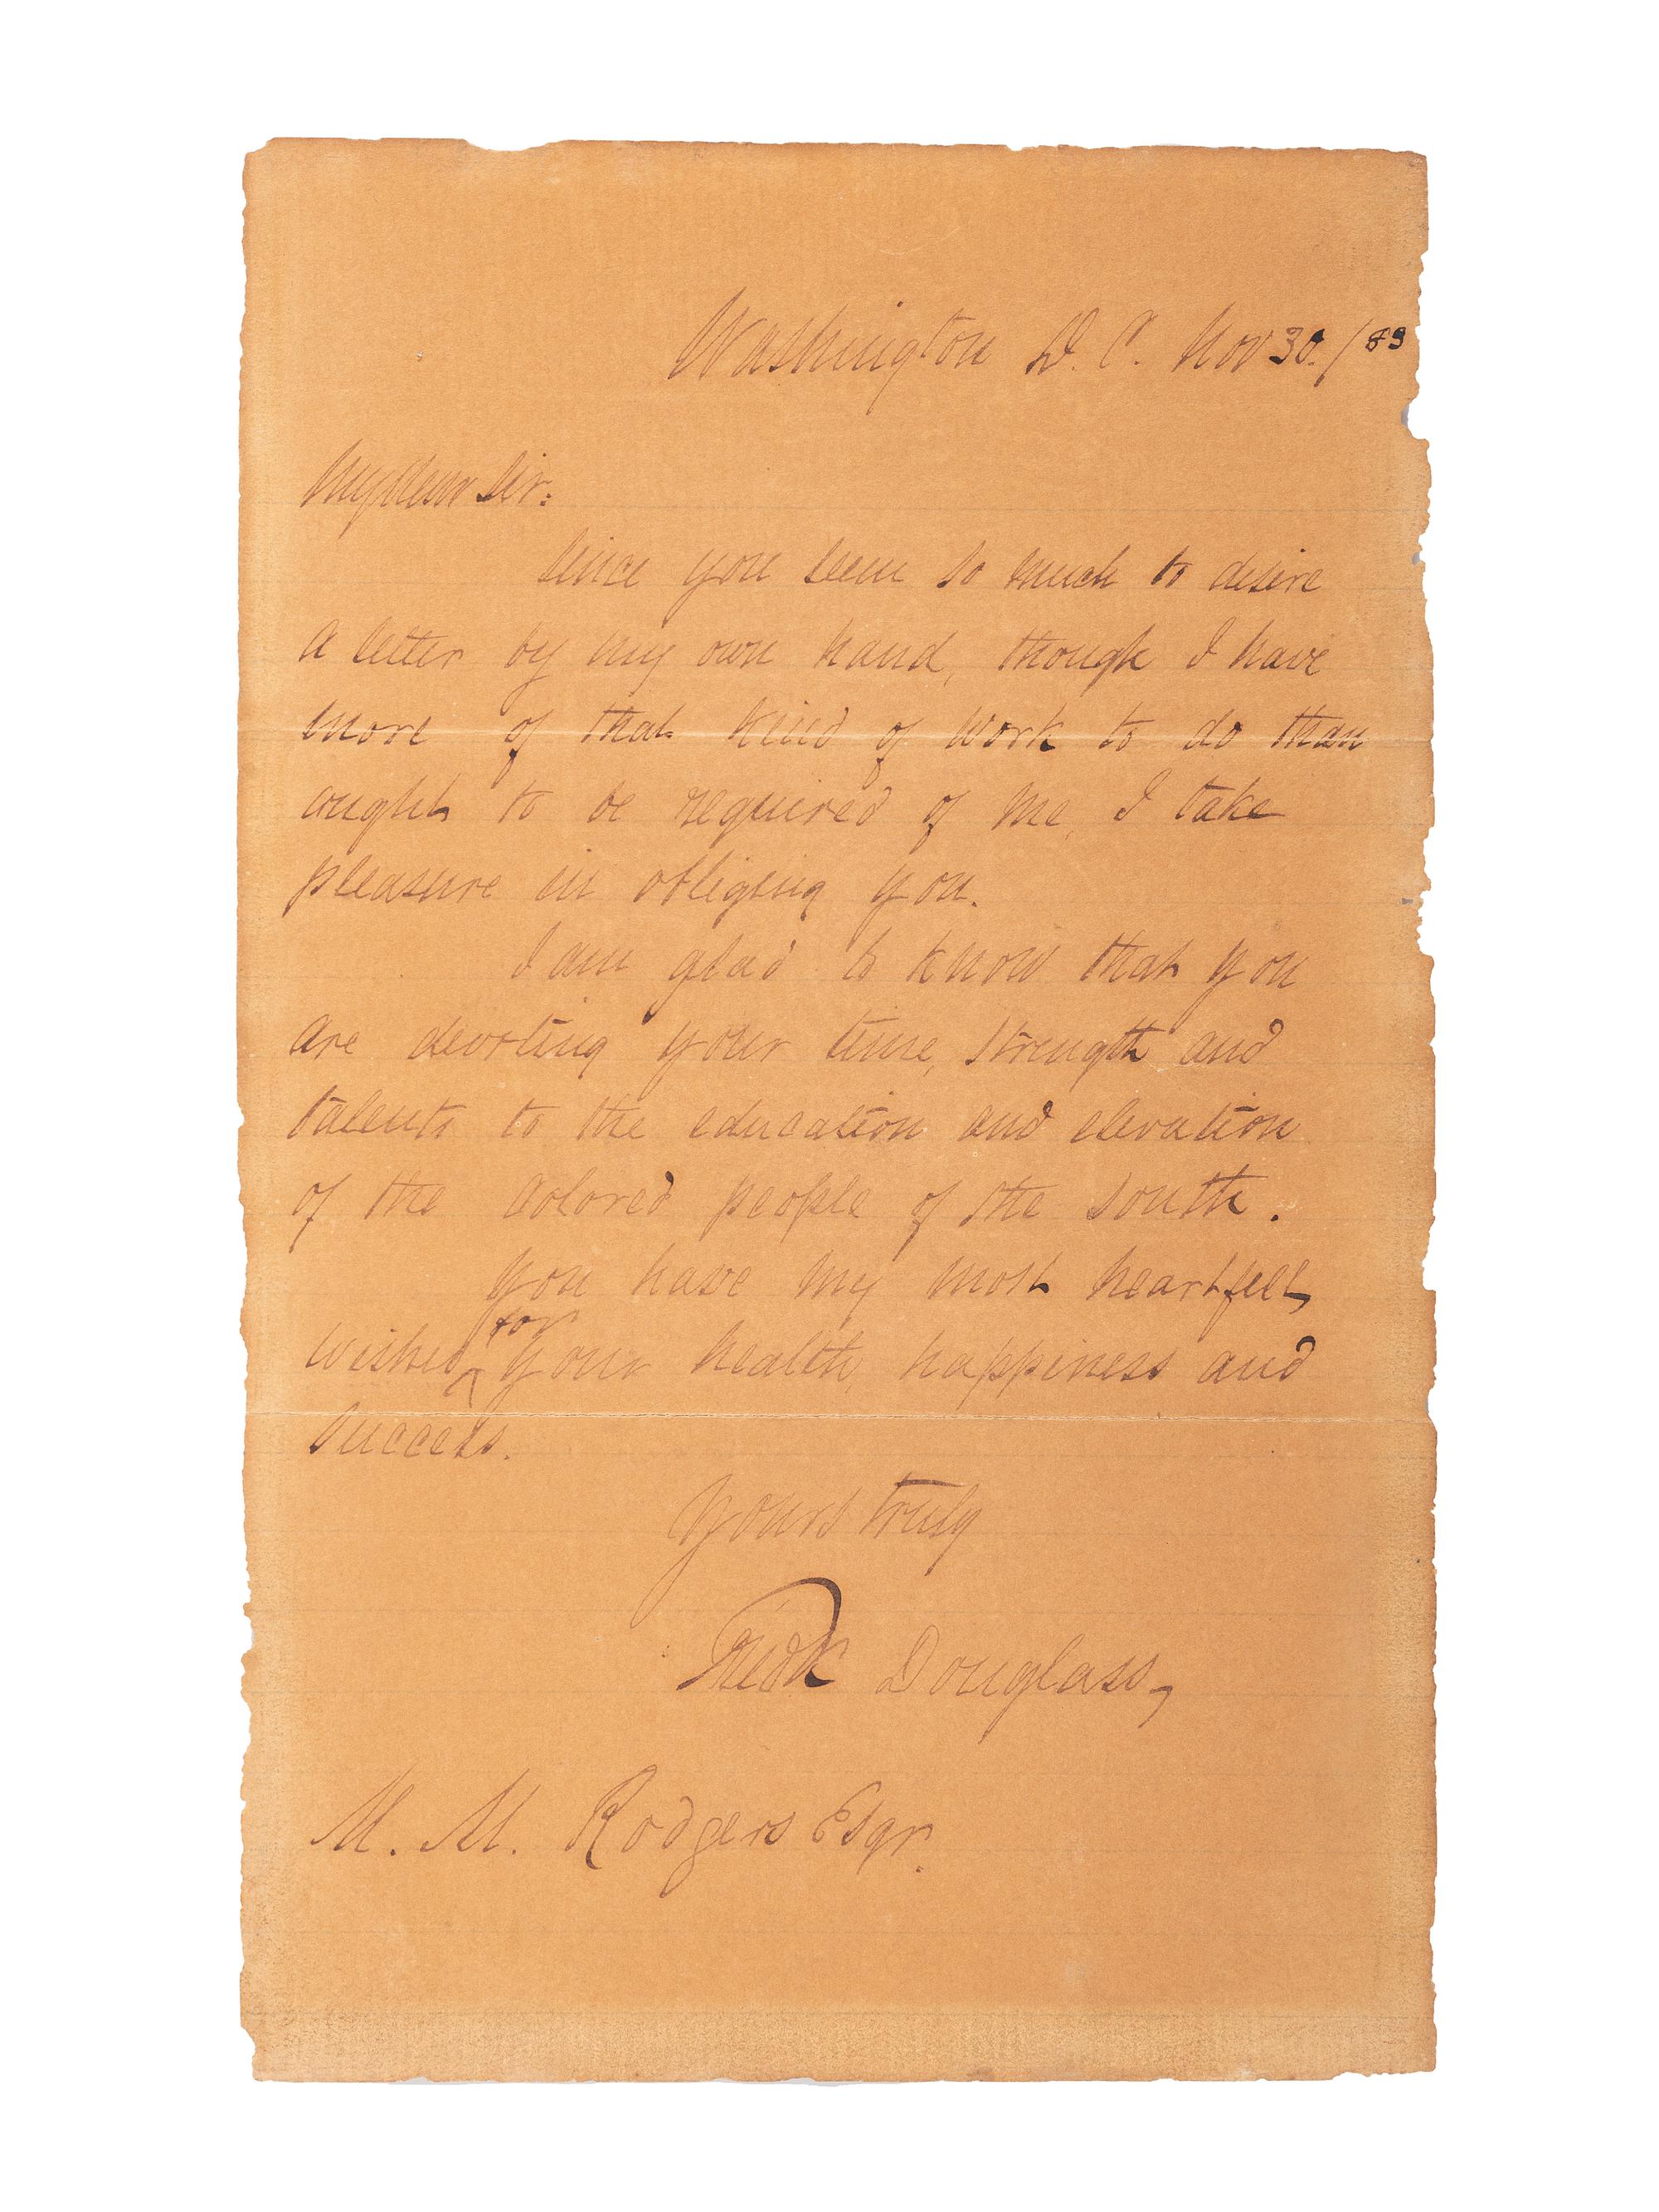 Washington D. C. Nov 30. / 83
My Dear Sir:
Since you seem so much to desire
a letter by my own hand, though I have
more of that kind of work to do than
ought to be required of me, I take
pleasure in obliging you.
I am glad to know that you
are devoting your time, strength and
talents to the education and elevation
of the colored people of the South.
You have my most heartfelt
for
wishes ^ your health, happiness and
success.
Yours truly
Fredk Douglass,
M. M. Rodgers Esqr.